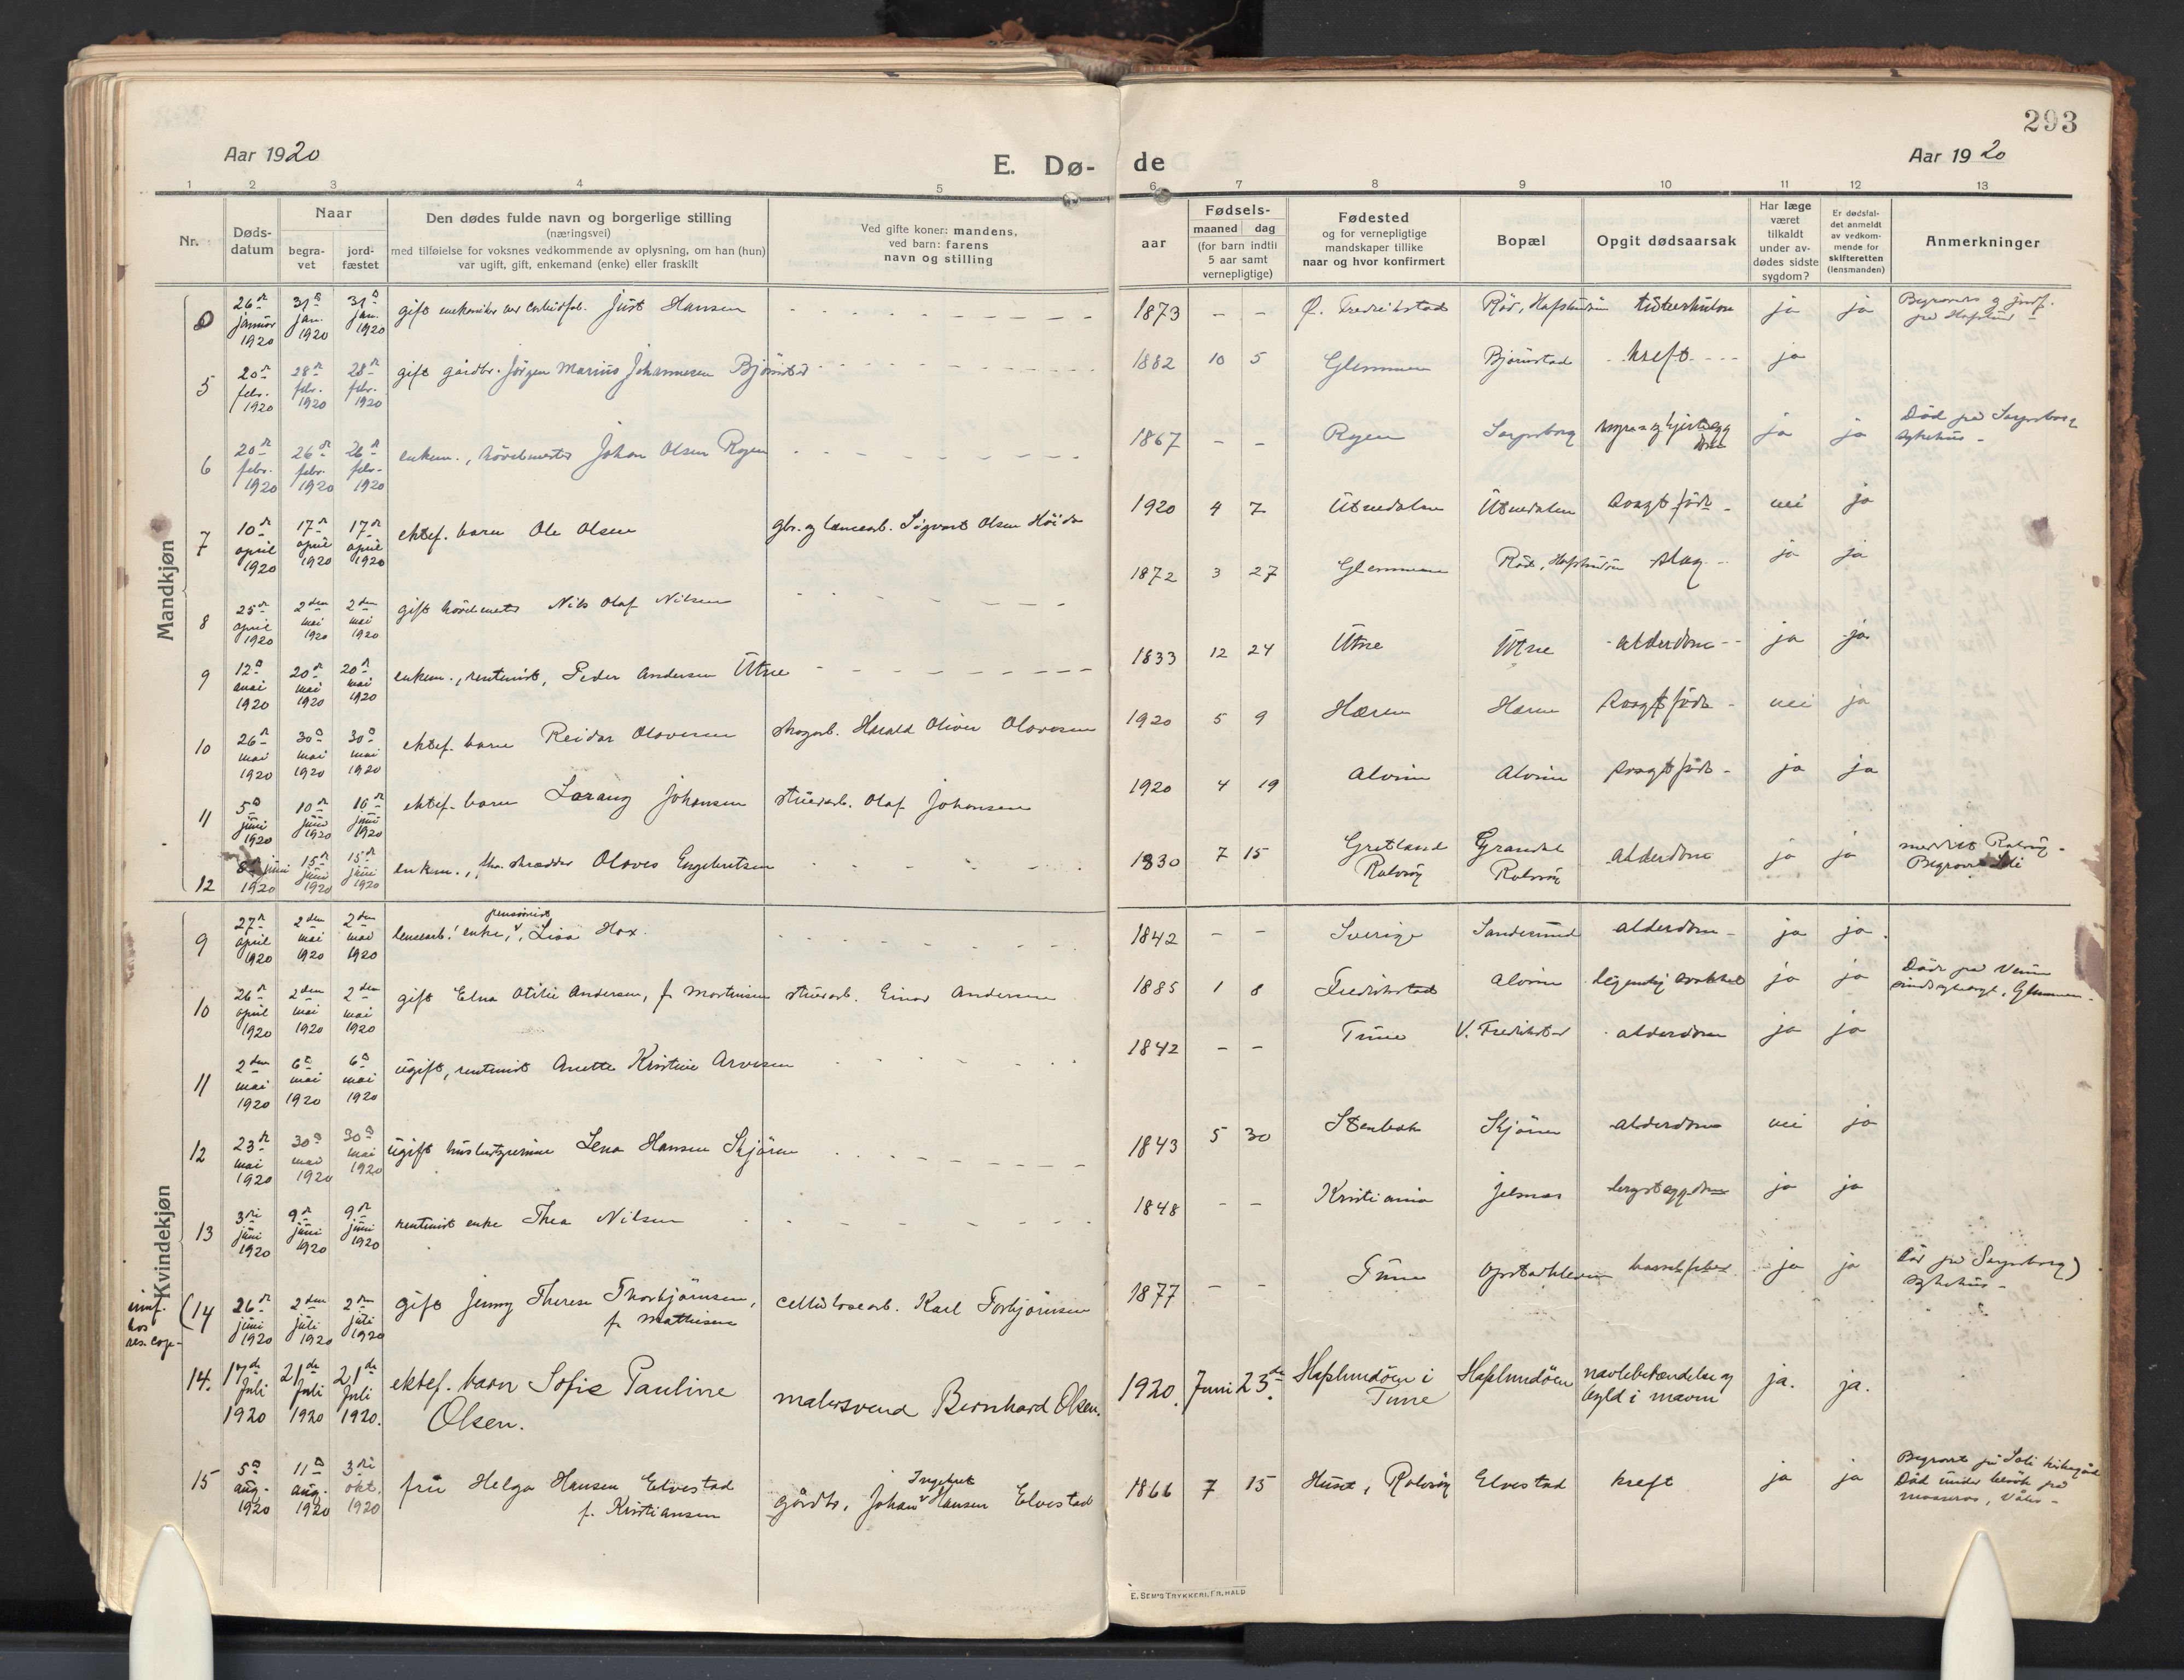 293
Aar 1920
E. Dø-
de
Aar 1920
1 2 3 4 5 6 7 8 9 10 11 12 13
Nr.
Døds-
datum
Naar
begra-
vet
jord-
fæstet
Den dødes fulde navn og borgerlige stilling
(næringsvei)
med tilføielse for voksnes vedkommende av oplysning, om han (hun)
var ugift, gift, enkemand (enke) eller fraskilt
Ved gifte koner: mandens,
ved barn: farens
navn og stilling
aar
Fødsels-
maaned dag
(for barn indtil
5 aar samt
vernepligtige)
Fødested
og for vernepligtige
mandskaper tillike
naar og hvor konfirmert
Bopæl
Opgit dødsaarsak
Har læge
været
tilkaldt
under av-
dødes sidste
sygdom?
Er dødsfal-
det anmeldt
av vedkom-
mende for
skifteretten
(lensmanden)
Anmerkninger
Mandkjøn
26de januar 1920 31te jan. 1920 31te jan. 1920 gift Just Hansen 1873 - - Ø. Fredrikstad Röd, Hafslundsöen tuberkulose ja ja
5 20de febr. 1920 28de febr. 1920 28de febr. 1920 gift gårdbr. Jörgen Marius Johannesen Björnstad 1882 10 5 Glemmen Björnstad kreft ja
6 20de febr. 1920 26de febr. 1920 26de febr. 1920 enkem., hövelmester Johan Olsen Rogen 1867 - - Rogen Sarpsborg ja ja Död på Sarpsborg sykehus
7 10de april 1920 17de april 1920 17de april 1920 ektef. barn Ole Olsen gbr. og lænsearb. Sigvart Olsen Höida 1920 4 7 Utnedalen Utnedalen svagt född nei ja
8 25de april 1920 2den mai 1920 2den mai 1920 gift hövelmester Nils Olaf Nilsen 1872 3 27 Glemmen Röd, Hafslundsöen slag ja ja
9 12te mai 1920 20de mai 1920 20de mai 1920 enkem., rentenist, Peder Andersen Utne 1833 12 24 Utne Utne alderdom ja ja
10 26de mai 1920 30te mai 1920 30te mai 1920 ektef. barn Reidar Olavesen skogarb. Harald Oliver Olavesen 1920 5 9 Hæren Hæren svagt född nei ja
11 5te juni 1920 10de juni 1920 10de juni 1920 ektef. barn Lorang Johansen stuerarb. Olaf Johansen 1920 4 19 Alvim Alvim svagt född ja ja
12 juni 1920 15de juni 1920 15de juni 1920 enkem., fhv. skrædder Olaves Engebretsen 1830 7 15 Gretland Rolvsöy Grandal Rolvsöy alderdom ja ja
Kvindekjøn
9 27de april 1920 2den mai 1920 2den mai 1920 lensearb. enke, pensionist, Lisa Hox 1842 - - Sverige Sandesund alderdom ja ja
10 26de april 1920 2den mai 1920 2den mai 1920 gift Elna Otilie Andersen, f. Martinsen stuerarb. Einar Andersen 1885 1 8 Fredrikstad Alvim ja ja
11 2den mai 1920 6te mai 1920 6te mai 1920 ugift, rentenist Anette Kristine Arvesen 1842 - - Tune V. Fredrikstad alderdom ja ja
12 23de mai 1920 30te mai 1920 30te mai 1920 ugift husholdgerinne Lena Hansen Skjören 1843 5 30 Stenbæk Skjören alderdom nei ja
13 3die juni 1920 9de juni 1920 9de juni 1920 rentenist enke Thea Nilsen 1848 - - Kristiania Jelsnes brystsygdom ja ja
(14 26de juni 1920 2den juli 1920 2den juli 1920 gift Jenny Therese Thorbjörnsen, f. Mathisen cellulosearb. Karl Torbjörnsen 1877 - - Tune Opstadkleven barselfeber ja ja Död på Sarpsborg sykehus)
14. 17de Juli 1920 21de Juli 1920 21de Juli 1920. ektef. barn Sofie Pauline Olsen. malersvend Bernhard Olsen. 1920. Juni 23de Hafslundöen i Tune Hafslundöen navlebetændelse og byld i maven ja. ja.
15 5te aug. 1920 11te aug. 1920 3die okt. 1920 frü Helga Hansen Elvestad f. Kristiansen gårdb. Johan Ingebret Hansen Elvestad 1866 7 15 Huset, Rolvsöy Elvestad kreft ja ja Begravet på Soli kirkegård Död under besök på Mosseros, Våler
E. SEM'S TRYKKERI, FR.HALD